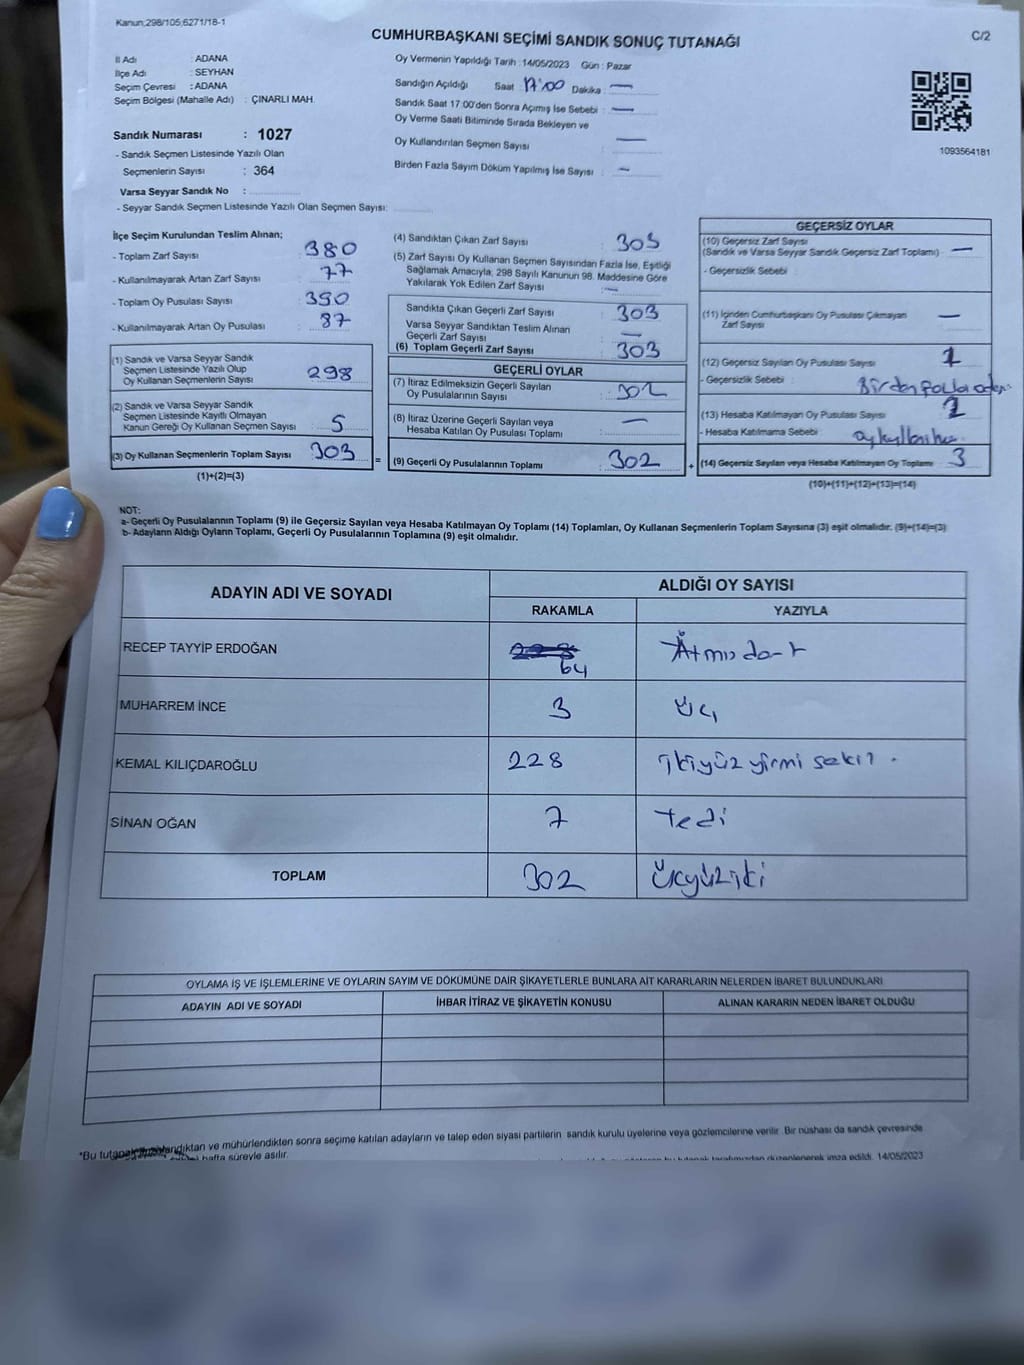 Kanun;298/105;6271/18-1
CUMHURBAŞKANI SEÇİMİ SANDIK SONUÇ TUTANAĞI
C/2
İl Adı : ADANA
İlçe Adı : SEYHAN
Seçim Çevresi : ADANA
Seçim Bölgesi (Mahalle Adı) : ÇINARLI MAH.
Sandık Numarası : 1027
- Sandık Seçmen Listesinde Yazılı Olan
Seçmenlerin Sayısı : 364
Varsa Seyyar Sandık No :
- Seyyar Sandık Seçmen Listesinde Yazılı Olan Seçmen Sayısı:
Oy Vermenin Yapıldığı Tarih : 14/05/2023 Gün : Pazar
Sandığın Açıldığı Saat : 17:00 Dakika : —
Sandık Saat 17:00'den Sonra Açımış İse Sebebi : —
Oy Verme Saati Bitiminde Sırada Bekleyen ve
Oy Kullandırılan Seçmen Sayısı : —
Birden Fazla Sayım Döküm Yapılmış İse Sayısı : —
1093564181
İlçe Seçim Kurulundan Teslim Alınan;
- Toplam Zarf Sayısı : 380
- Kullanılmayarak Artan Zarf Sayısı : 77
- Toplam Oy Pusulası Sayısı : 390
- Kullanılmayarak Artan Oy Pusulası : 87
(1) Sandık ve Varsa Seyyar Sandık
Seçmen Listesinde Yazılı Olup
Oy Kullanan Seçmenlerin Sayısı : 298
(2) Sandık ve Varsa Seyyar Sandık
Seçmen Listesinde Kayıtlı Olmayan
Kanun Gereği Oy Kullanan Seçmen Sayısı : 5
(3) Oy Kullanan Seçmenlerin Toplam Sayısı : 303
(1)+(2)=(3)
(4) Sandıktan Çıkan Zarf Sayısı : 303
(5) Zarf Sayısı Oy Kullanan Seçmen Sayısından Fazla İse, Eşitliği
Sağlamak Amacıyla; 298 Sayılı Kanunun 98. Maddesine Göre
Yakılarak Yok Edilen Zarf Sayısı : —
Sandıkta Çıkan Geçerli Zarf Sayısı : 303
Varsa Seyyar Sandıktan Teslim Alınan
Geçerli Zarf Sayısı : —
(6) Toplam Geçerli Zarf Sayısı : 303
GEÇERLİ OYLAR
(7) İtiraz Edilmeksizin Geçerli Sayılan
Oy Pusulalarının Sayısı : 302
(8) İtiraz Üzerine Geçerli Sayılan veya
Hesaba Katılan Oy Pusulası Toplamı : —
= (9) Geçerli Oy Pusulalarının Toplamı : 302
GEÇERSİZ OYLAR
(10) Geçersiz Zarf Sayısı
(Sandık ve Varsa Seyyar Sandık Geçersiz Zarf Toplamı) : —
- Geçersizlik Sebebi :
(11) İçinden Cumhurbaşkanı Oy Pusulası Çıkmayan
Zarf Sayısı : —
(12) Geçersiz Sayılan Oy Pusulası Sayısı : 1
- Geçersizlik Sebebi : Birden fazla
(13) Hesaba Katılmayan Oy Pusulası Sayısı :
- Hesaba Katılmama Sebebi :
+ (14) Geçersiz Sayılan veya Hesaba Katılmayan Oy Toplamı : 3
(10)+(11)+(12)+(13)=(14)
NOT:
a- Geçerli Oy Pusulalarının Toplamı (9) ile Geçersiz Sayılan veya Hesaba Katılmayan Oy Toplamı (14) Toplamları, Oy Kullanan Seçmenlerin Toplam Sayısına (3) eşit olmalıdır. (9)+(14)=(3)
b- Adayların Aldığı Oyların Toplamı, Geçerli Oy Pusulalarının Toplamına (9) eşit olmalıdır.
ADAYIN ADI VE SOYADI
ALDIĞI OY SAYISI
RAKAMLA YAZIYLA
RECEP TAYYİP ERDOĞAN 64 Atmışdört
MUHARREM İNCE 3 Üç
KEMAL KILIÇDAROĞLU 228 ikiyüz yirmi sekiz
SİNAN OĞAN 7 Yedi
TOPLAM 302 Üçyüziki
OYLAMA İŞ VE İŞLEMLERİNE VE OYLARIN SAYIM VE DÖKÜMÜNE DAİR ŞİKAYETLERLE BUNLARA AİT KARARLARIN NELERDEN İBARET BULUNDUKLARI
ADAYIN ADI VE SOYADI İHBAR İTİRAZ VE ŞİKAYETİN KONUSU ALINAN KARARIN NEDEN İBARET OLDUĞU
*Bu ve mühürlendikten sonra seçime katılan adayların ve talep eden siyasi partilerin sandık kurulu üyelerine veya gözlemcilerine verilir. Bir nüshası da sandık çevresinde
hafta süreyle asılır.
düzenlenerek imza edildi. 14/05/2023